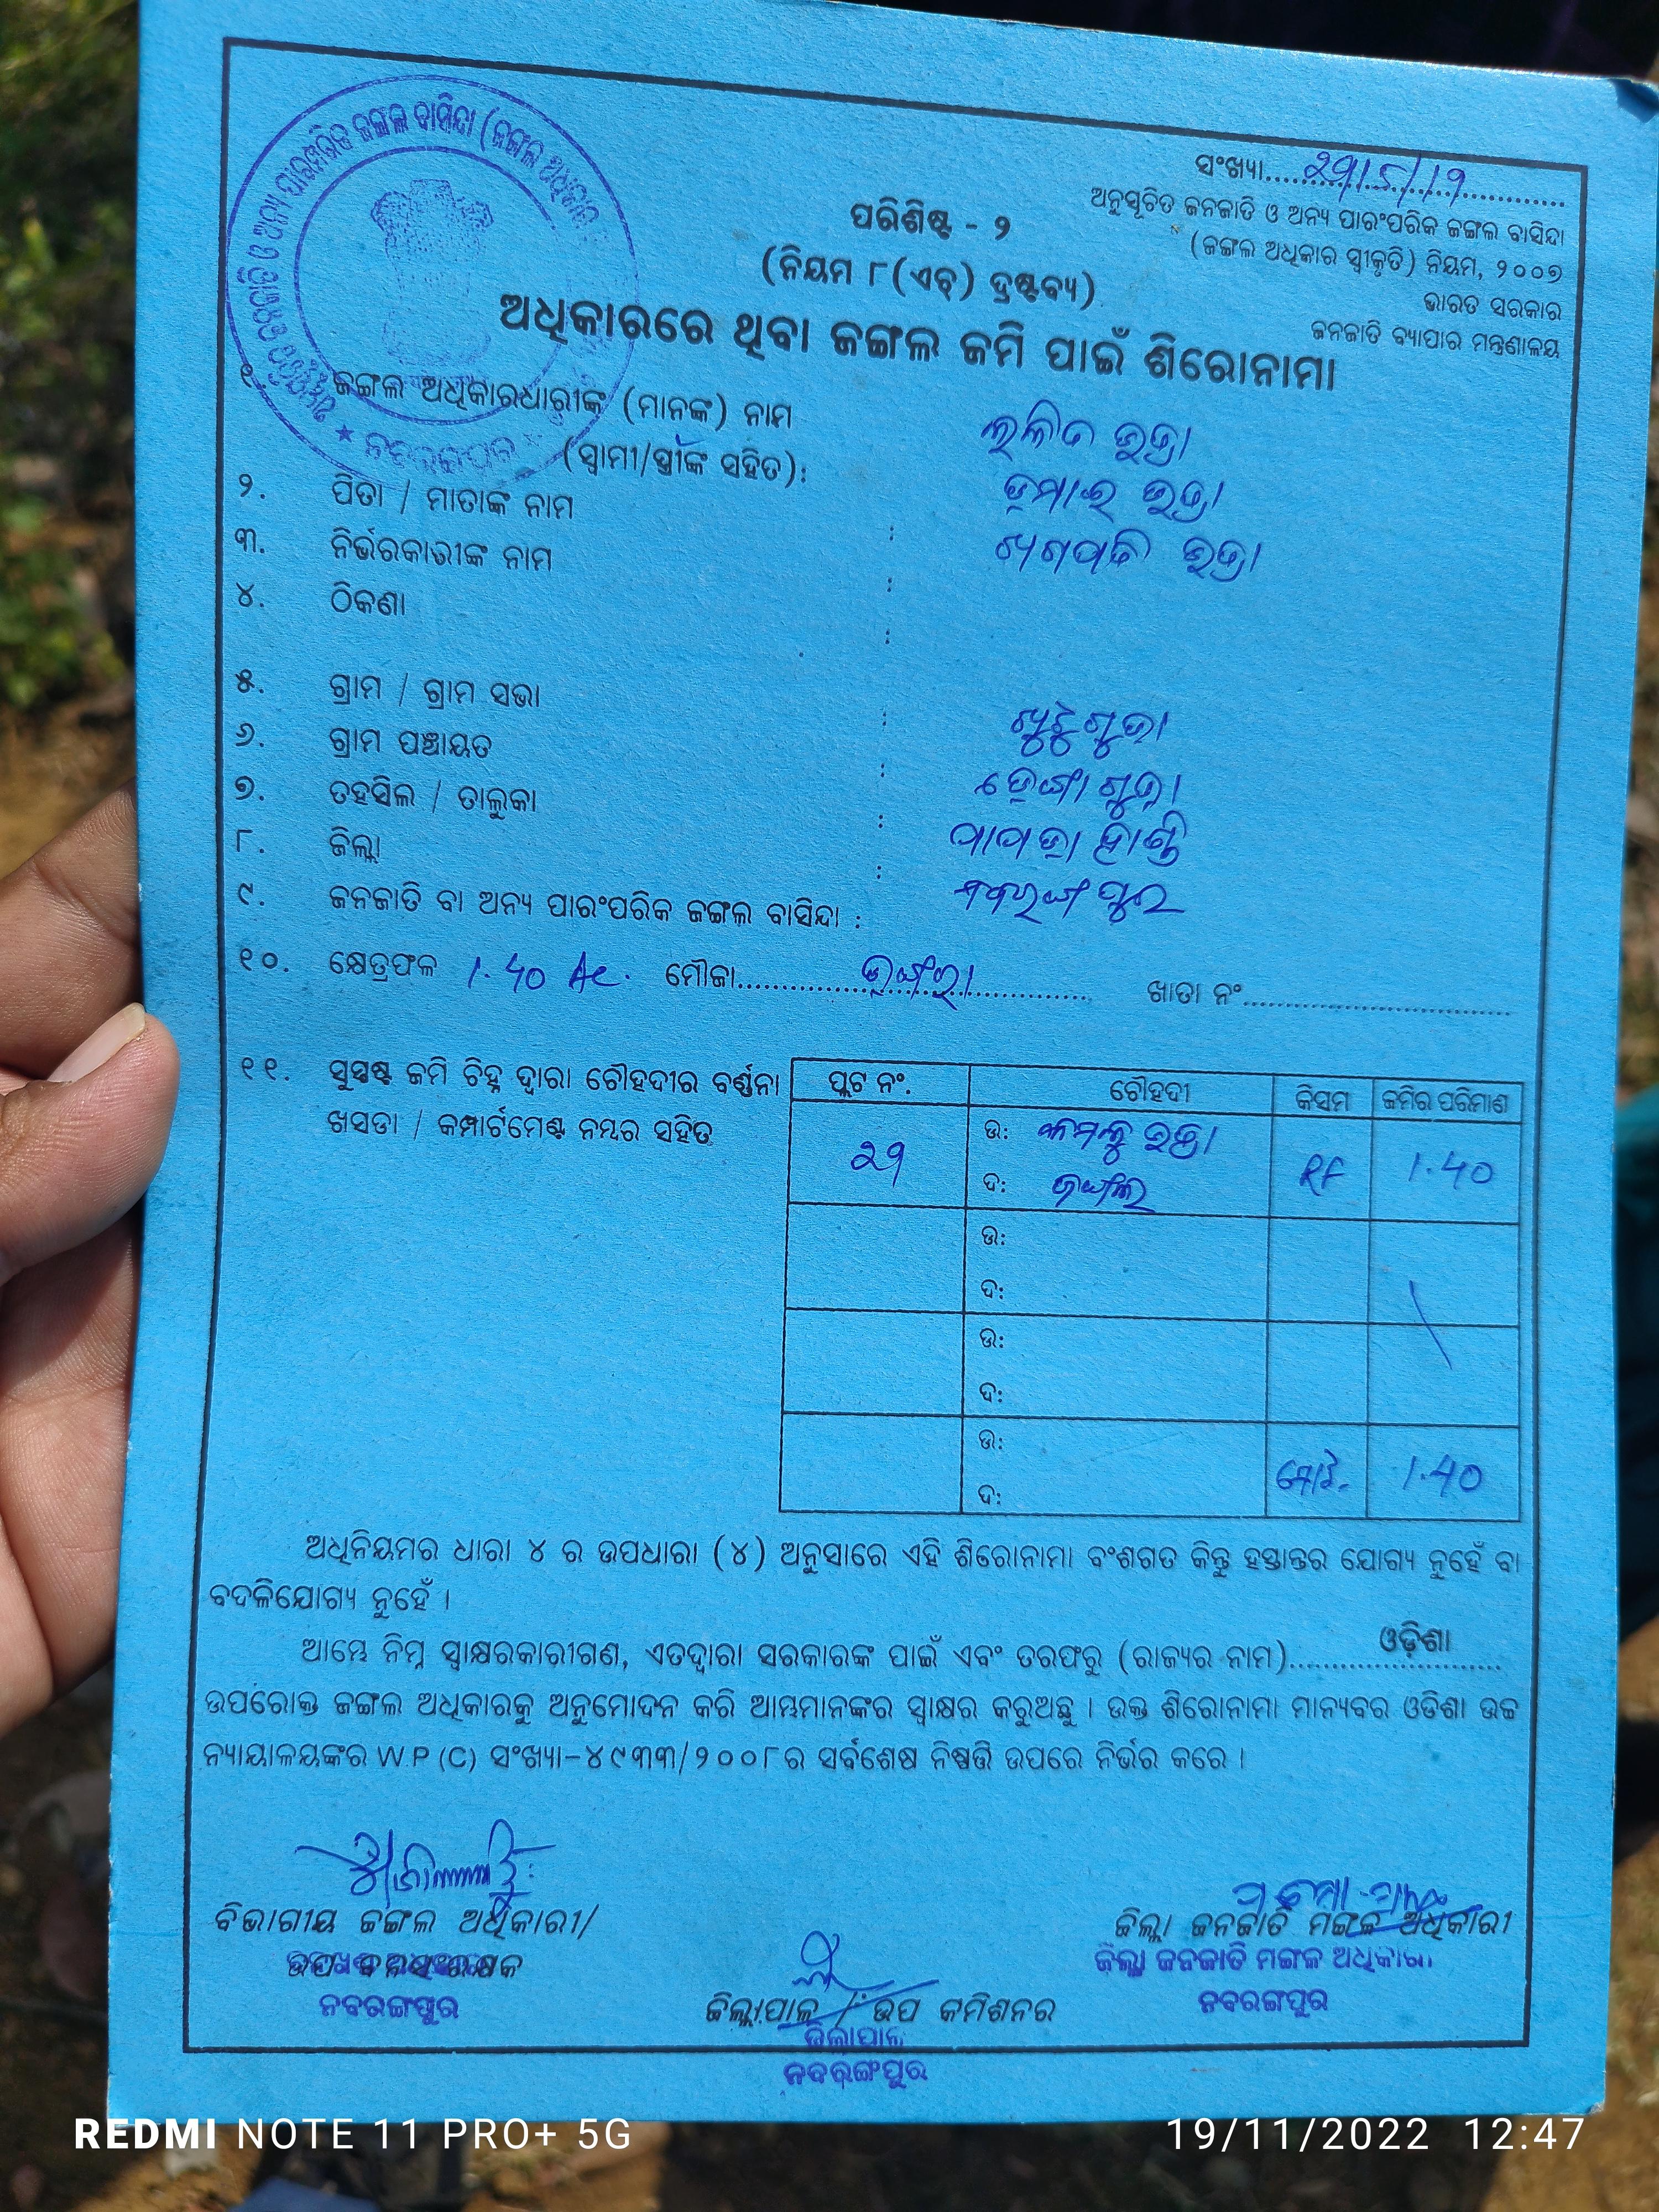 ସଂଖ୍ୟା
ଅନୁସୂଚିତ ଜନଜାତି ଓ ଅନ୍ୟ ପାରଂପରିକ ଜଙ୍ଗଲ ବାସିନ୍ଦା
(ଜଙ୍ଗଲ ଅଧିକାର ସ୍ୱୀକୃତି) ନିୟମ, ୨୦୦୭
ଭାରତ ସରକାର
ଜନଜାତି ବ୍ୟାପାର ମନ୍ତ୍ରଣାଳୟ
ପରିଶିଷ୍ଟ - ୨
(ନିୟମ ୮(ଏଚ୍) ଦ୍ରଷ୍ଟବ୍ୟ)
ଅଧିକାରରେ ଥିବା ଜଙ୍ଗଲ ଜମି ପାଇଁ ଶିରୋନାମା
୧. ଜଙ୍ଗଲ ଅଧିକାରଧାରୀଙ୍କ (ମାନଙ୍କ) ନାମ
(ସ୍ୱାମୀ/ସ୍ତ୍ରୀଙ୍କ ସହିତ):
୨. ପିତା / ମାତାଙ୍କ ନାମ :
୩. ନିର୍ଭରକାରୀଙ୍କ ନାମ :
୪. ଠିକଣା :
୫. ଗ୍ରାମ / ଗ୍ରାମ ସଭା :
୬. ଗ୍ରାମ ପଞ୍ଚାୟତ :
୭. ତହସିଲ / ତାଲୁକା : ପାପଡାହାଣ୍ଡି
୮. ଜିଲ୍ଲା : ନବରଙ୍ଗପୁର
୯. ଜନଜାତି ବା ଅନ୍ୟ ପାରଂପରିକ ଜଙ୍ଗଲ ବାସିନ୍ଦା :
୧୦. କ୍ଷେତ୍ରଫଳ 1.40 Ac. ମୌଜା ଖାତା ନଂ
୧୧. ସୁସ୍ପଷ୍ଟ ଜମି ଚିହ୍ନ ଦ୍ୱାରା ଚୌହଦୀର ବର୍ଣ୍ଣନା
ଖସଡା / କମ୍ପାର୍ଟମେଣ୍ଟ ନମ୍ବର ସହିତ
ପ୍ଲଟ ନଂ. ଚୌହଦୀ କିସମ ଜମିର ପରିମାଣ
୨୨ ଉ: RF 1.40
ଦ: ଜଙ୍ଗଲ
ଉ:
ଦ:
ଉ:
ଦ:
ଉ: ମୋଟ 1.40
ଦ:
ଅଧିନିୟମର ଧାରା ୪ ର ଉପଧାରା (୪) ଅନୁସାରେ ଏହି ଶିରୋନାମା ବଂଶଗତ କିନ୍ତୁ ହସ୍ତାନ୍ତର ଯୋଗ୍ୟ ନୁହେଁ ବା
ବଦଳିଯୋଗ୍ୟ ନୁହେଁ ।
ଆମ୍ଭେ ନିମ୍ନ ସ୍ୱାକ୍ଷରକାରୀଗଣ, ଏତଦ୍ୱାରା ସରକାରଙ୍କ ପାଇଁ ଏବଂ ତରଫରୁ (ରାଜ୍ୟର ନାମ) ଓଡ଼ିଶା
ଉପରୋକ୍ତ ଜଙ୍ଗଲ ଅଧିକାରକୁ ଅନୁମୋଦନ କରି ଆମ୍ଭମାନଙ୍କର ସ୍ୱାକ୍ଷର କରୁଅଛୁ । ଉକ୍ତ ଶିରୋନାମା ମାନ୍ୟବର ଓଡିଶା ଉଚ୍ଚ
ନ୍ୟାୟାଳୟଙ୍କର W.P (C) ସଂଖ୍ୟା-୪୯୩୩/୨୦୦୮ର ସର୍ବଶେଷ ନିଷ୍ପତ୍ତି ଉପରେ ନିର୍ଭର କରେ ।
ବିଭାଗୀୟ ଜଙ୍ଗଲ ଅଧିକାରୀ/
ଉପ ବନ ସଂରକ୍ଷକ
ନବରଙ୍ଗପୁର
ଜିଲ୍ଲା ଜନଜାତି ମଙ୍ଗଳ ଅଧିକାରୀ
ଜିଲ୍ଲା ଜନଜାତି ମଙ୍ଗଳ ଅଧିକାରୀ
ନବରଙ୍ଗପୁର
ଜିଲ୍ଲାପାଳ / ଉପ କମିଶନର
ଜିଲ୍ଲାପାଳ
ନବରଙ୍ଗପୁର
REDMI NOTE 11 PRO+ 5G
19/11/2022 12:47